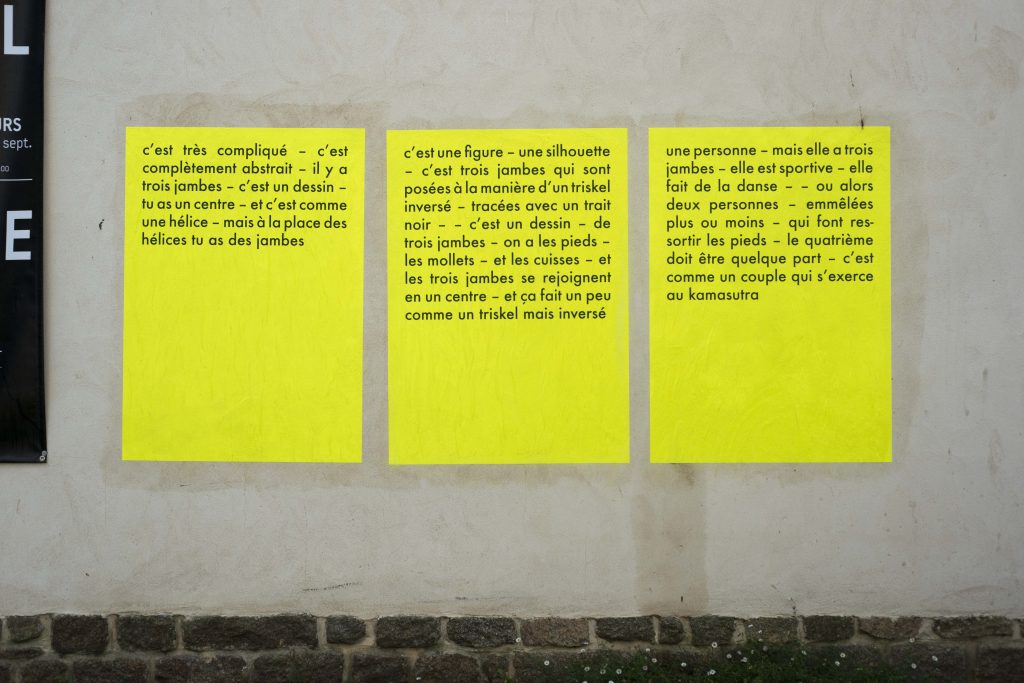 L
URS
sept.
00
E
c'est très compliqué – c'est
complètement abstrait – il y a
trois jambes – c'est un dessin –
tu as un centre – et c'est comme
une hélice – mais à la place des
hélices tu as des jambes
c'est une figure – une silhouette
– c'est trois jambes qui sont
posées à la manière d'un triskel
inversé – tracées avec un trait
noir – – c'est un dessin – de
trois jambes – on a les pieds –
les mollets – et les cuisses – et
les trois jambes se rejoignent
en un centre – et ça fait un peu
comme un triskel mais inversé
une personne – mais elle a trois
jambes – elle est sportive – elle
fait de la danse – – ou alors
deux personnes – emmêlées
plus ou moins – qui font res-
sortir les pieds – le quatrième
doit être quelque part – c'est
comme un couple qui s'exerce
au kamasutra